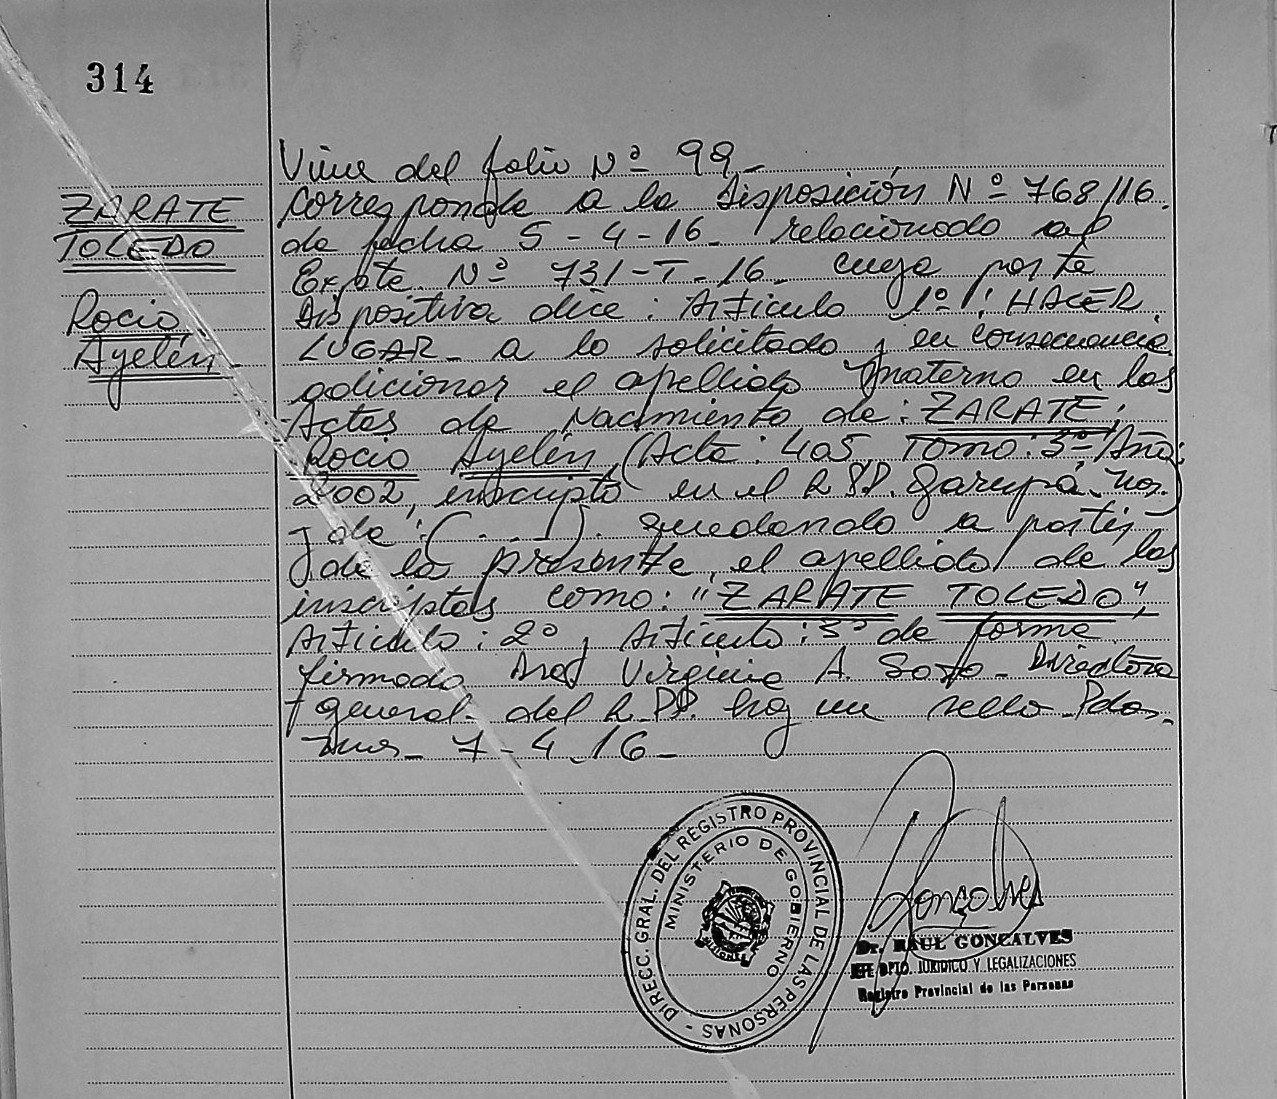 314
ZARATE
TOLEDO
Rocio
Ayelén
Viene del folio Nº 99-
corresponde a la disposición Nº 768/16.
de fecha 5-4-16- relacionado al
Expte Nº 731-T-16- cuya parte
dispositiva dice: Artículo 1º: HACER
LUGAR- a lo solicitado y en consecuencia
adicionar el apellido materno en las
Actas de Nacimiento de: ZARATE,
Rocio Ayelén, (Acta: 405, Tomo: 3º Año:
2002, inscripta en el R.P.P. Garupá-
y de: (....). quedando a partir
de la presente, el apellido de los
inscriptos como: "ZARATE TOLEDO",
Artículo: 2º, Artículo: 3º de forma.
firmado Virginia A. Soto- Directora
general- del R.PP. hay un sello- Pdas.
Mnes- 7-4-16-
DIRECC. GRAL. DEL REGISTRO PROVINCIAL DE LAS PERSONAS -
MINISTERIO DE GOBIERNO
MISIONES
Gonçalves
Dr. RAUL GONCALVES
JEFE DPTO. JURIDICO Y LEGALIZACIONES
Registro Provincial de las Personas